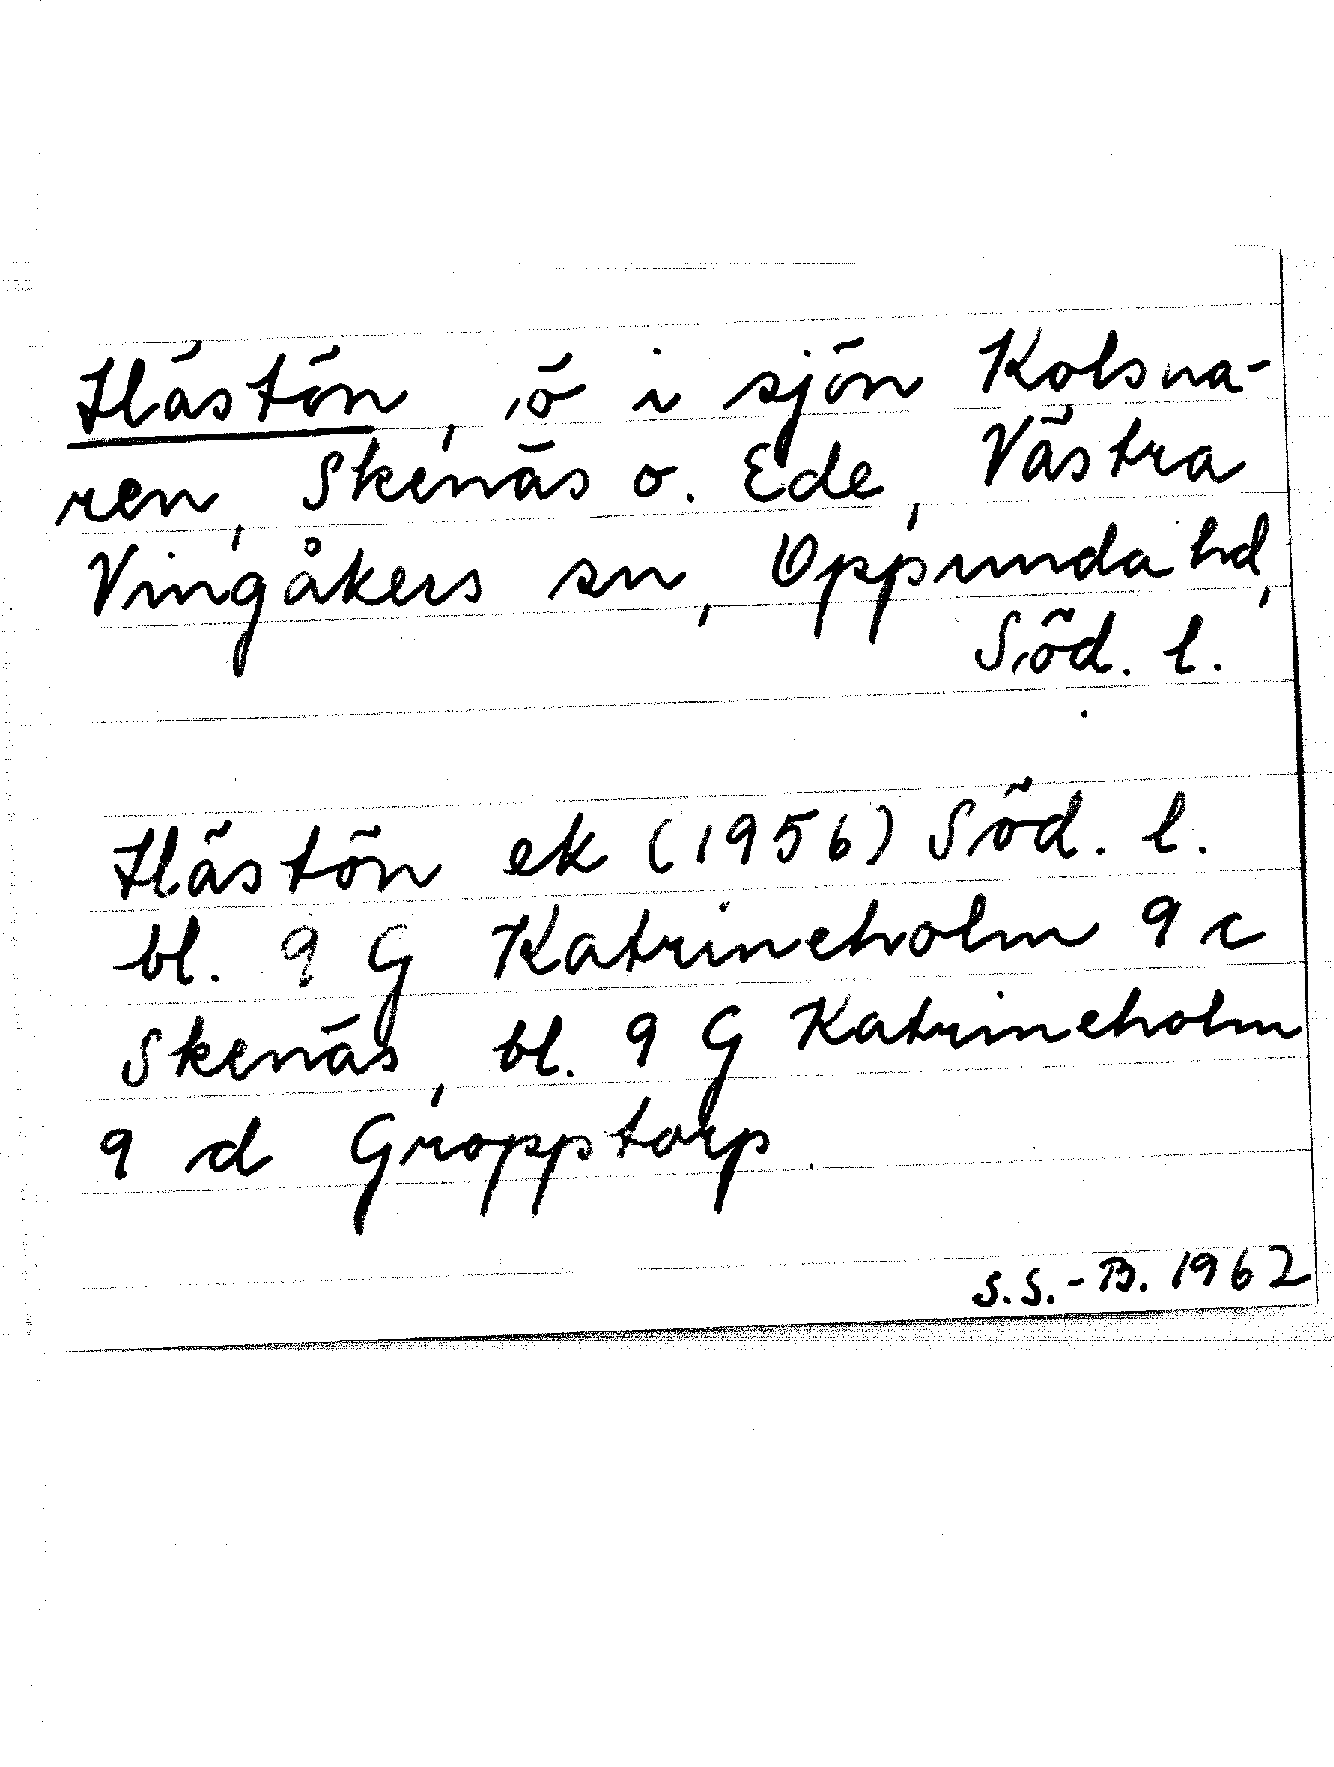 Hästön, ö i sjön Kolsna-
ren, Skenäs o. Ede, Västra
Vingåkers sn, Oppunda hd,
Söd. l.
Hästön ek (1956) Söd. l.
bl. 9 G Katrineholm 9 c
Skenäs, bl. 9 G Katrineholm
9 d Gropptorp
S.S.-B. 1962